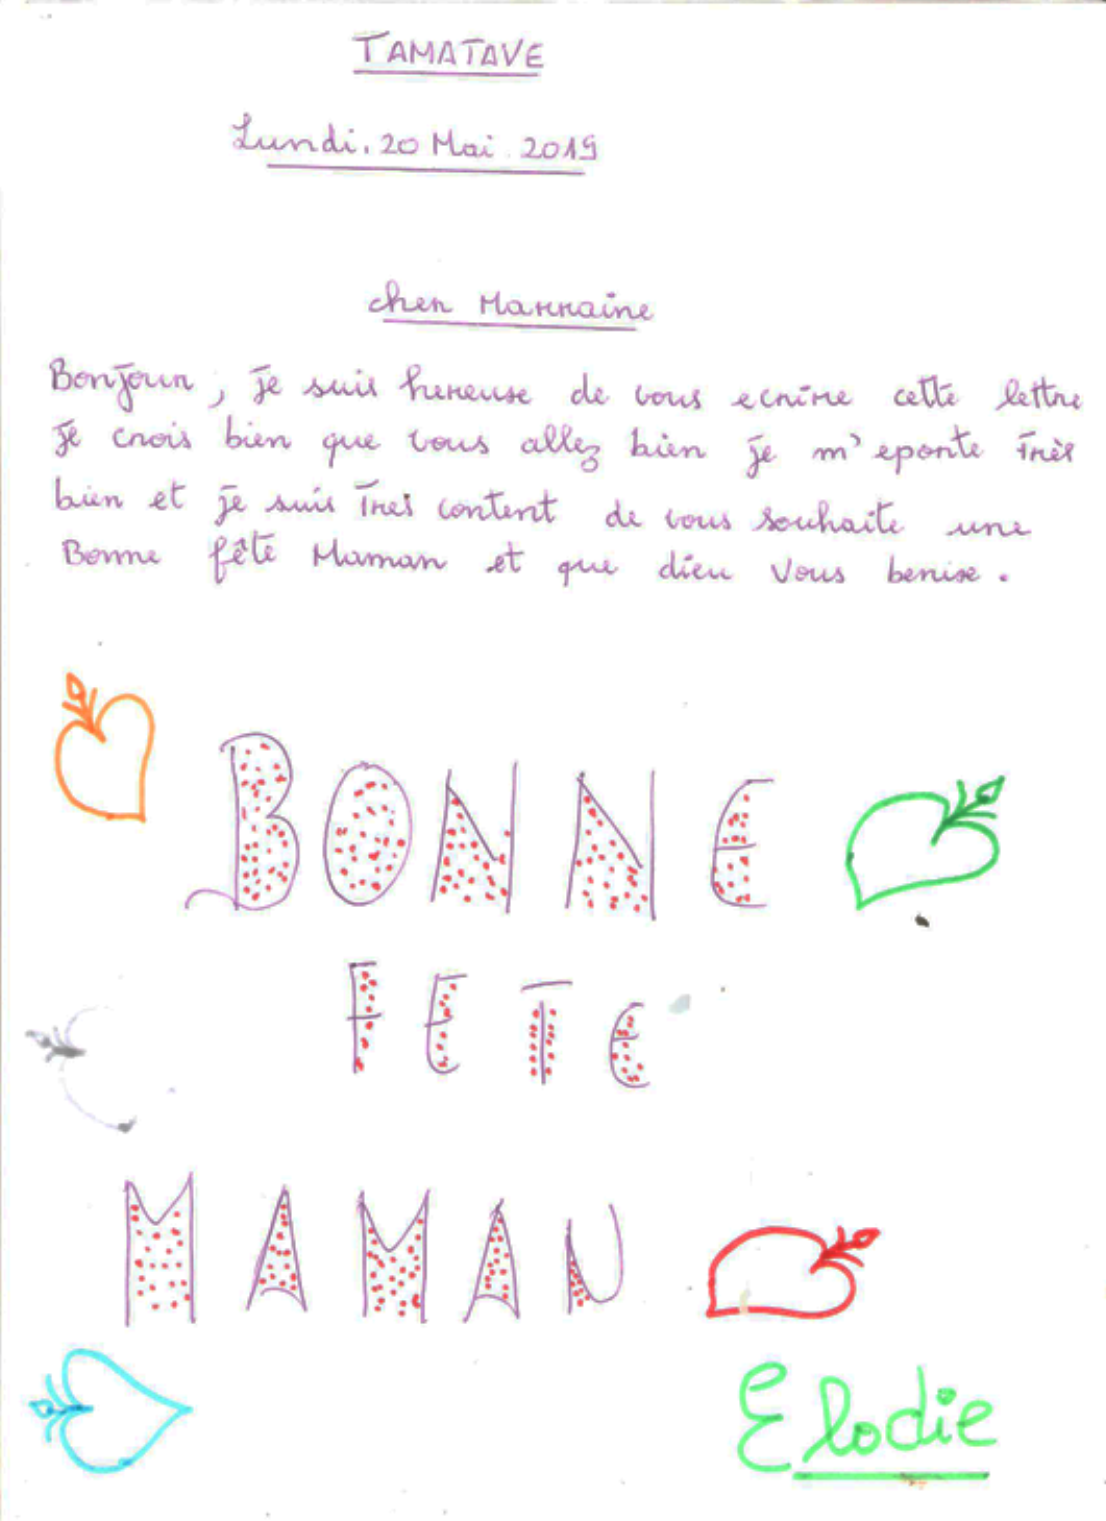 TAMATAVE
Lundi. 20 Mai 2019
cher Marraine
Bonjour, je suis hereuse de vous ecrire cette lettre
je crois bien que vous allez bien je m'eporte très
bien et je suis tres content de vous souhaite une
Bonne fête Maman et que dieu Vous benise.
BONNE
FETE
MAMAN
Elodie